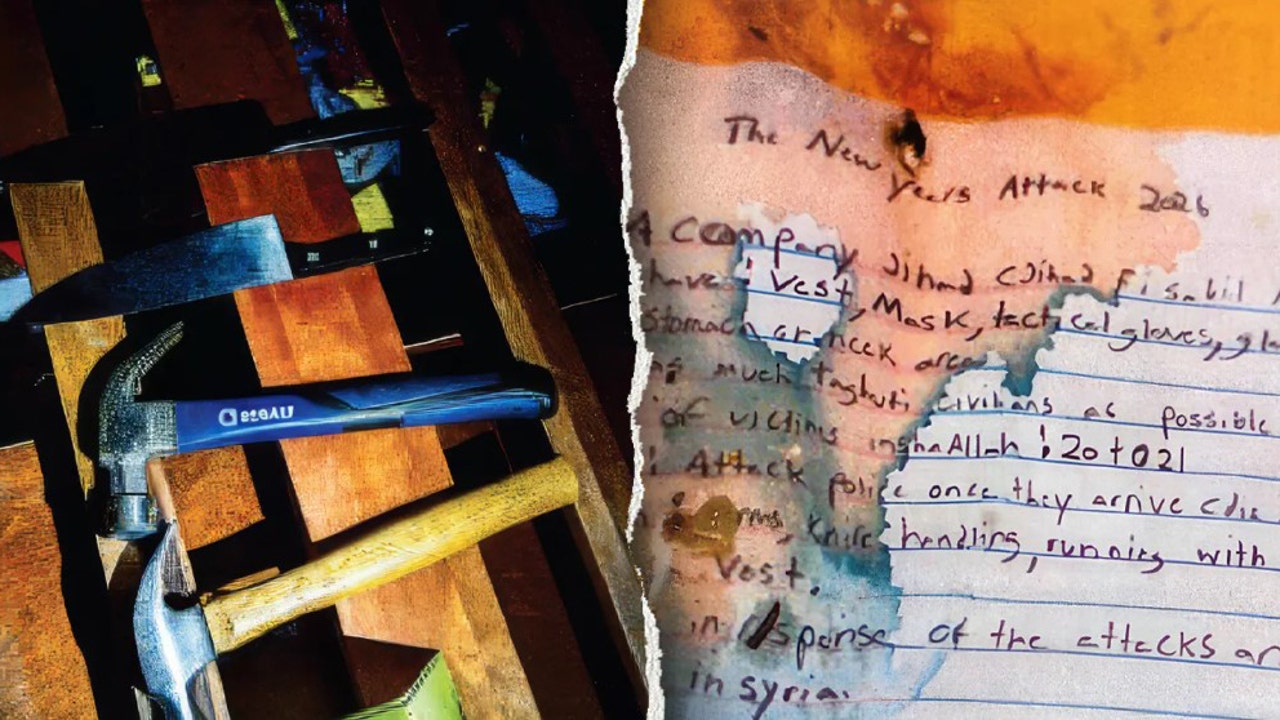 The New Years Attack 2026
A Company Jihad (Jihad fi sabil
have: Vest, Mask, tactical gloves,
Stomach or neck area
much taghuti civilians as possible
of victims inshaAllah: 20 to 21
: Attack police once they arrive
Knife handling, running with
Vest.
in response of the attacks
in syria.